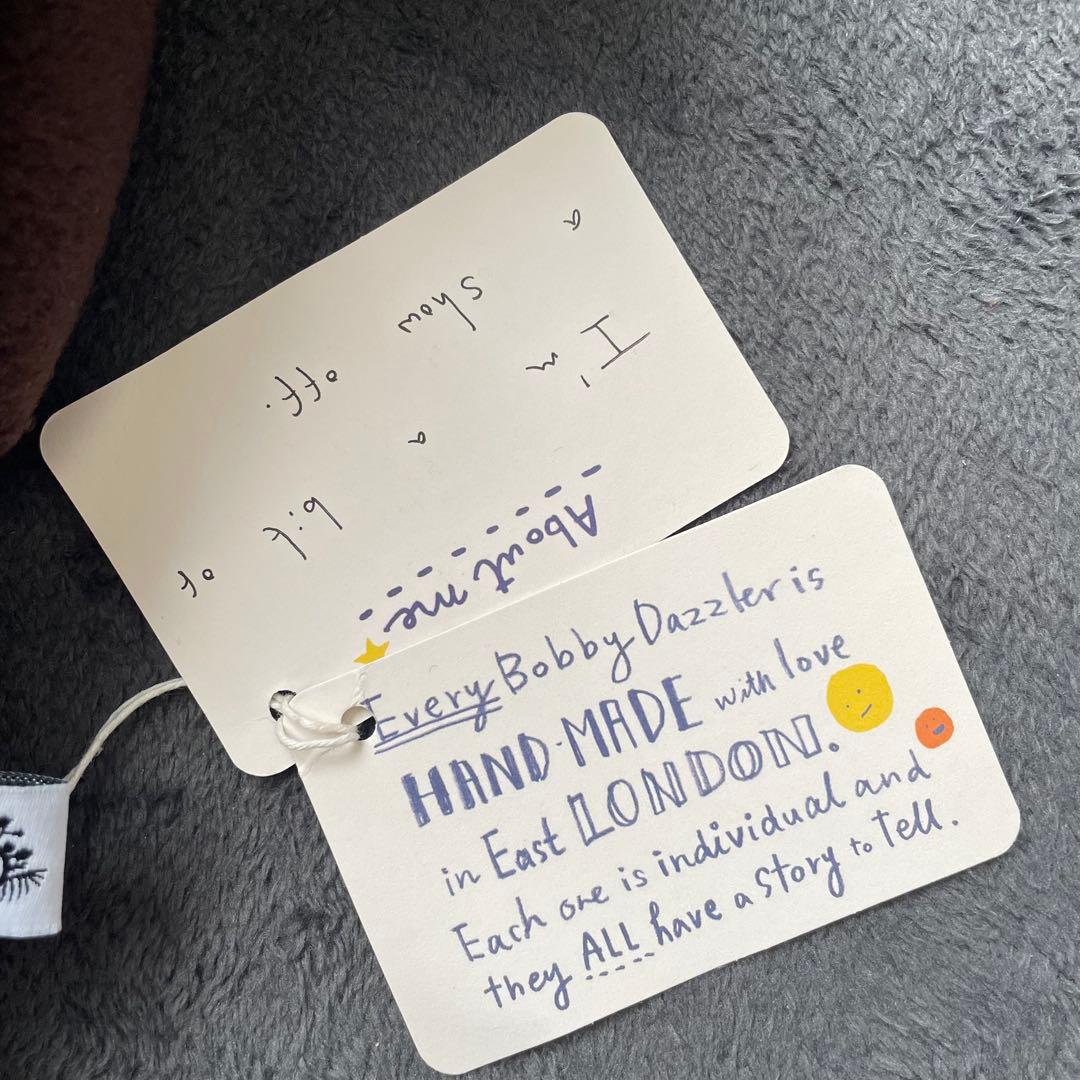 About me
I'm a bit of
a show off.
Every Bobby Dazzler is
HAND-MADE with love
in East LONDON.
Each one is individual and
they ALL have a story to tell.